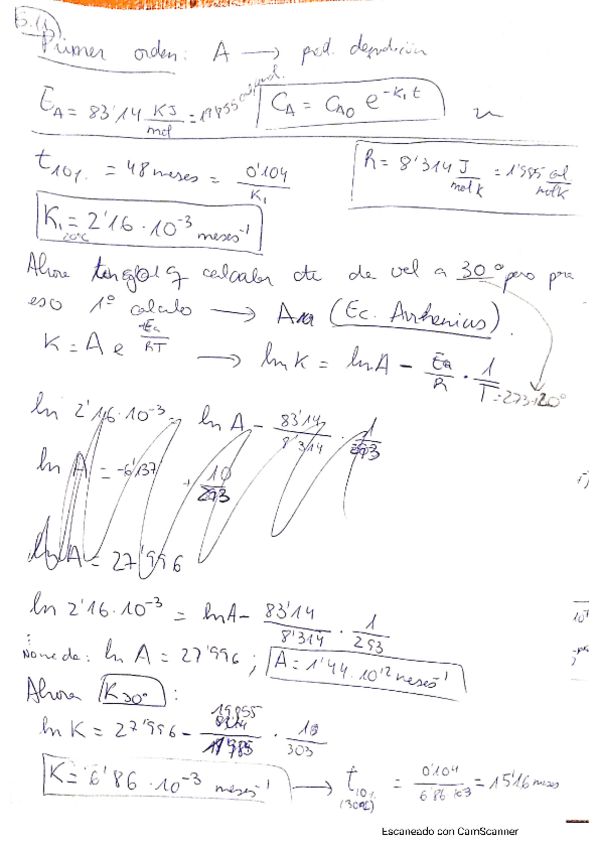 5.1)
Primer orden: A → prod. degradación
EA = 83'14 KJ/mol = 19855 cal/mol. CA = CA0 e^-K1t
t10% = 48 meses = 0'104/K1
R = 8'314 J/mol K = 1'985 cal/molK
K1 20ºC = 2'16 · 10^-3 meses^-1
Ahora tengo q calcular cte de vel a 30º pero pra
eso 1º calculo → A (Ec. Arrhenius).
K = A e^-Ea/RT → ln K = lnA - Ea/R · 1/T = 273+20º
ln 2'16·10^-3 = ln A - 83'14/8'314 · 1/293
ln A = -6'137 + 10/293
ln A = 27'996
ln 2'16·10^-3 = lnA - 83'14/8'314 · 1/293
ln A = 27'996 ; A = 1'44·10^12 meses^-1
Ahora K30º :
ln K = 27'996 - 19855/1'985 · 1/303
K = 6'86 · 10^-3 meses^-1 → t10% (30ºC) = 0'104/6'86·10^-3 = 15'16 meses
Escaneado con CamScanner